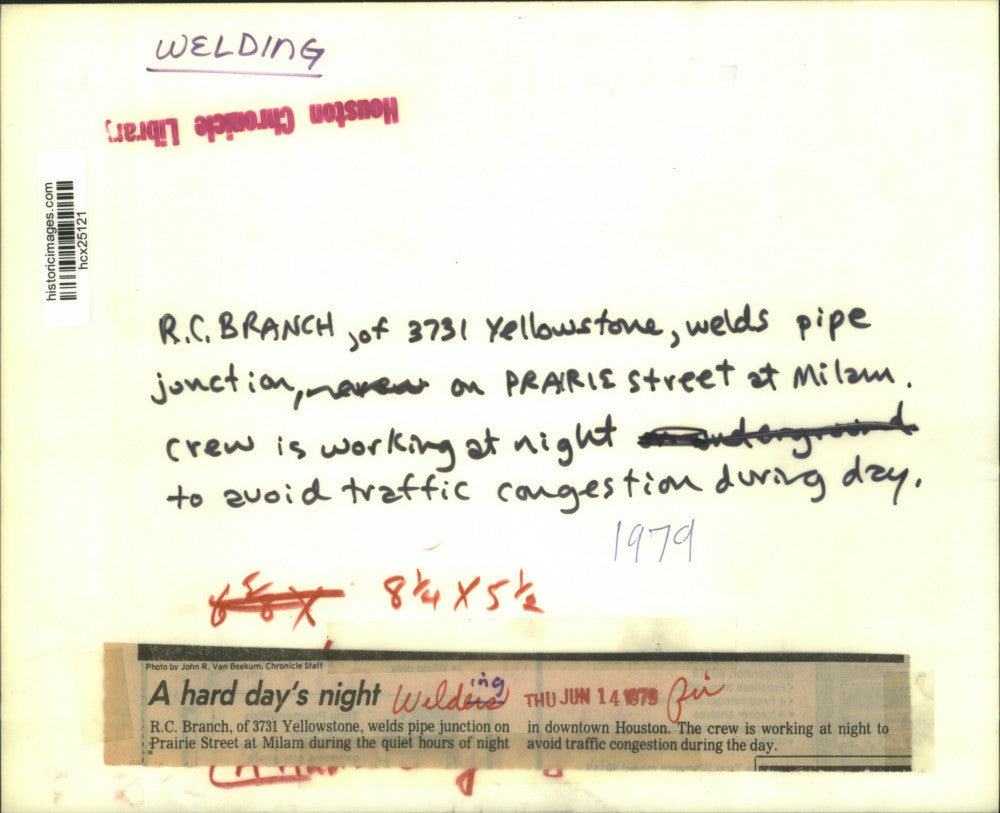 WELDING
Houston Chronicle Library
historicimages.com
hcx25121
R.C. BRANCH, of 3731 Yellowstone, welds pipe
junction, on PRAIRIE street at Milam.
crew is working at night underground
to avoid traffic congestion during day.
1979
6 5/8 X 8 1/4 X 5 1/2
Photo by John R. Van Beekum, Chronicle Staff
A hard day's night Welding THU JUN 14 1979
R.C. Branch, of 3731 Yellowstone, welds pipe junction on
Prairie Street at Milam during the quiet hours of night
in downtown Houston. The crew is working at night to
avoid traffic congestion during the day.